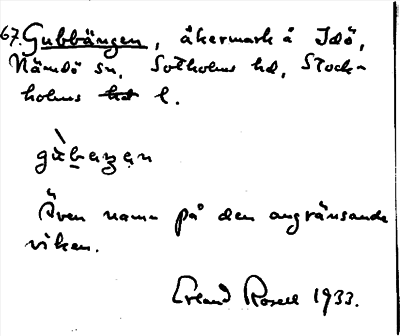 67. Gubbängen, åkermark å Idö,
Nämdö sn, Sotholms hd, Stock-
holms l.
gùbaŋan
Även namn på den angränsande
viken.
Erland Rosell 1933.